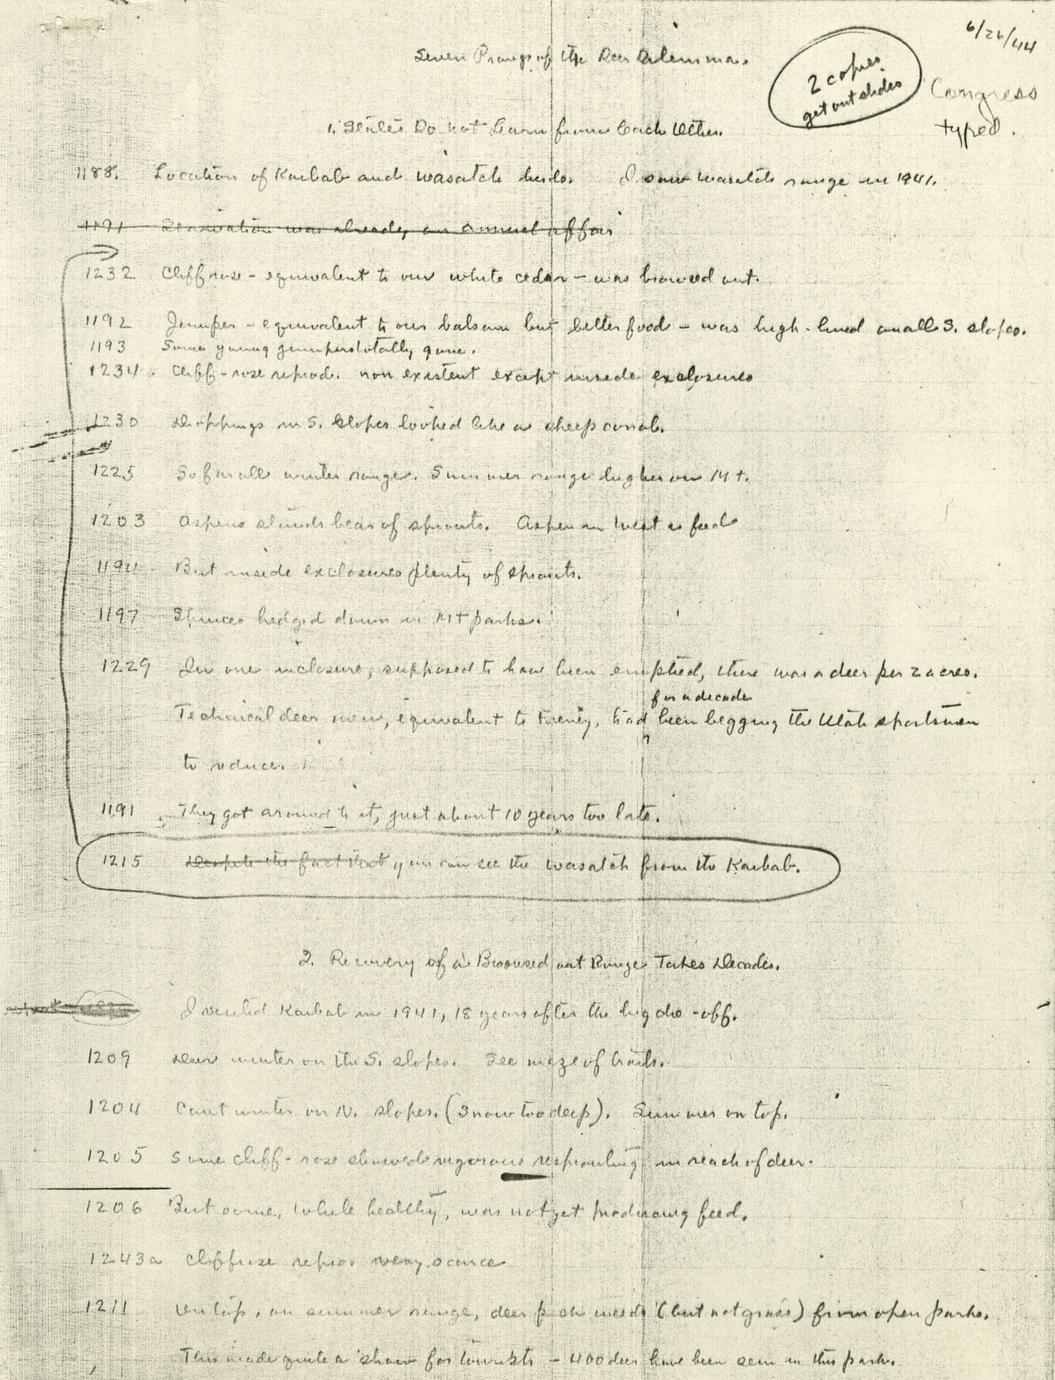 6/26/44
Seven Prongs of the Deer Dilemma.
2 copies
get out slides
Congress
typed.
1. States Do not Learn from Each Other.
1188. Location of Kaibab and Wasatch herds. I saw Wasatch range in 1941.
1191 Starvation was already an annual affair
1232 Cliffrose - equivalent to our white cedar - was browsed out.
1192 Juniper - equivalent to our balsam but better food - was high-lined on all S. slopes.
1193 Some young junipers totally gone.
1234. Cliff-rose reprod. non existent except inside exclosures
1230 Droppings on S. Slopes looked like a sheep corral.
1225 So far all winter range. Summer range higher on Mt.
1203 Aspen stands bear of sprouts. Aspen in West is feed
1194 But inside exclosures plenty of sprouts.
1197 Spruces hedged down in Mt parks.
1229 In one inclosure, supposed to have been emptied, there was a deer per 2 acres.
for a decade
Technical deer men, equivalent to Feeney, had been begging the Utah sportsmen
to reduce.
1191 They got around to it, just about 10 years too late.
1215 Despite the fact that you can see the Wasatch from the Kaibab.
2. Recovery of a Browsed out Range Takes Decades.
I visited Kaibab in 1941, 18 years after the big die-off.
1209 Deer winter on the S. slopes. See maze of trails.
1204 Cant winter on N. slopes. (Snow too deep). Summer on top.
1205 Some cliff-rose showed vigorous resprouting in reach of deer.
1206 But some, while healthy, was not yet producing feed.
1243a Cliffrose reprod very scarce
1211 On top, on summer range, deer pick weeds (but not grass) from open parks.
This made quite a show for tourists - 400 deer have been seen in this park.